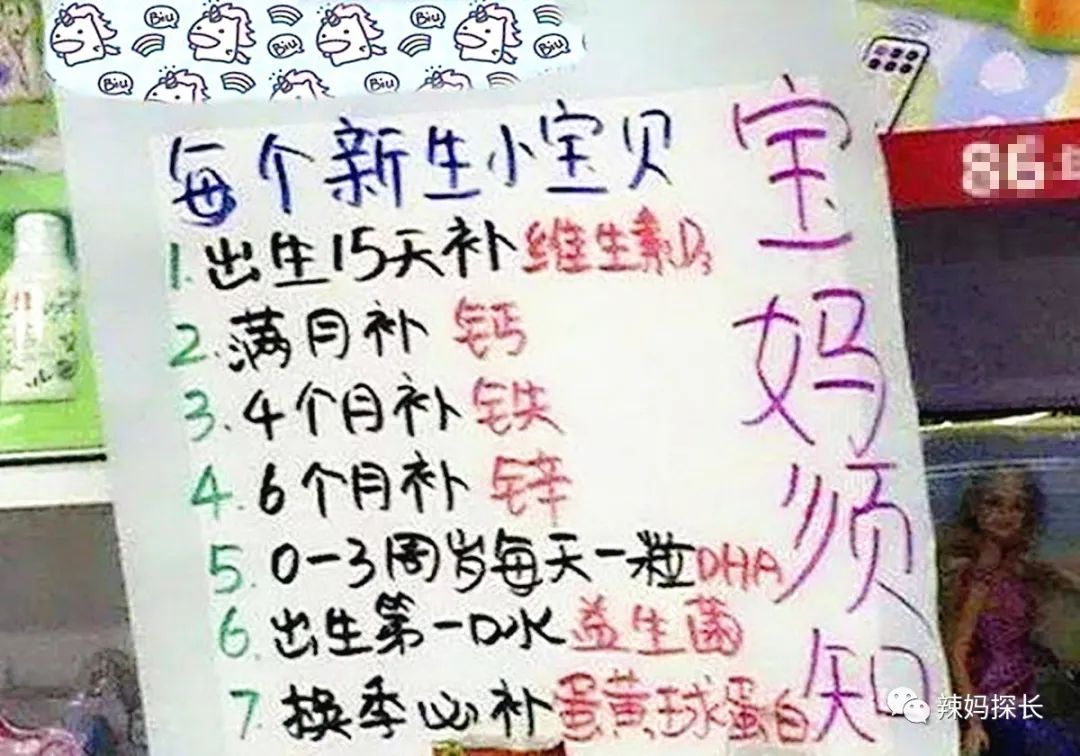 Biu Biu Biu
Biu Biu
每个新生小宝贝
1.出生15天补维生素D₃
2.满月补钙
3.4个月补铁
4.6个月补锌
5.0-3周岁每天一粒DHA
6.出生第一口水益生菌
7.换季必补蛋黄球蛋白
宝妈须知
86
辣妈探长